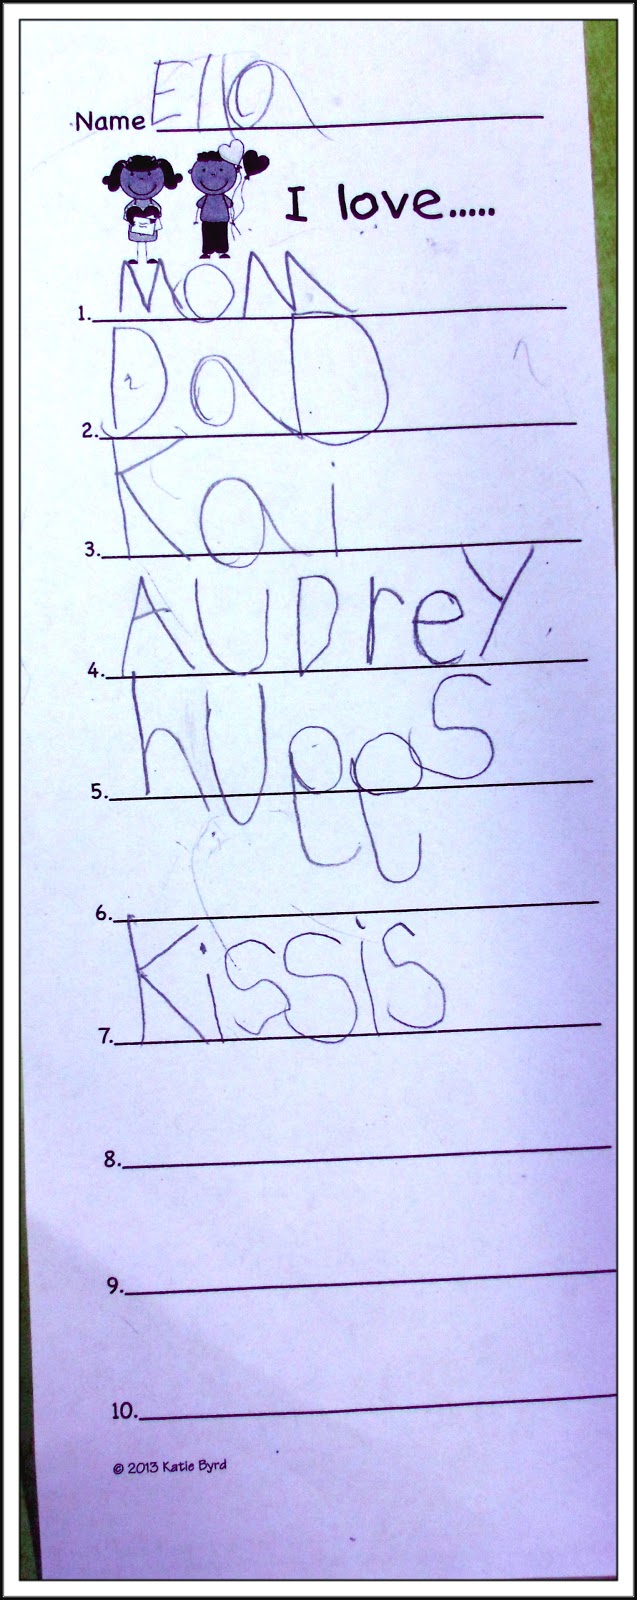 Name Ella
I love.....
1. MOM
2. DaD
3. Kai
4. AUDreY
5. hUggs
6.
7. Kissis
8.
9.
10.
© 2013 Katie Byrd